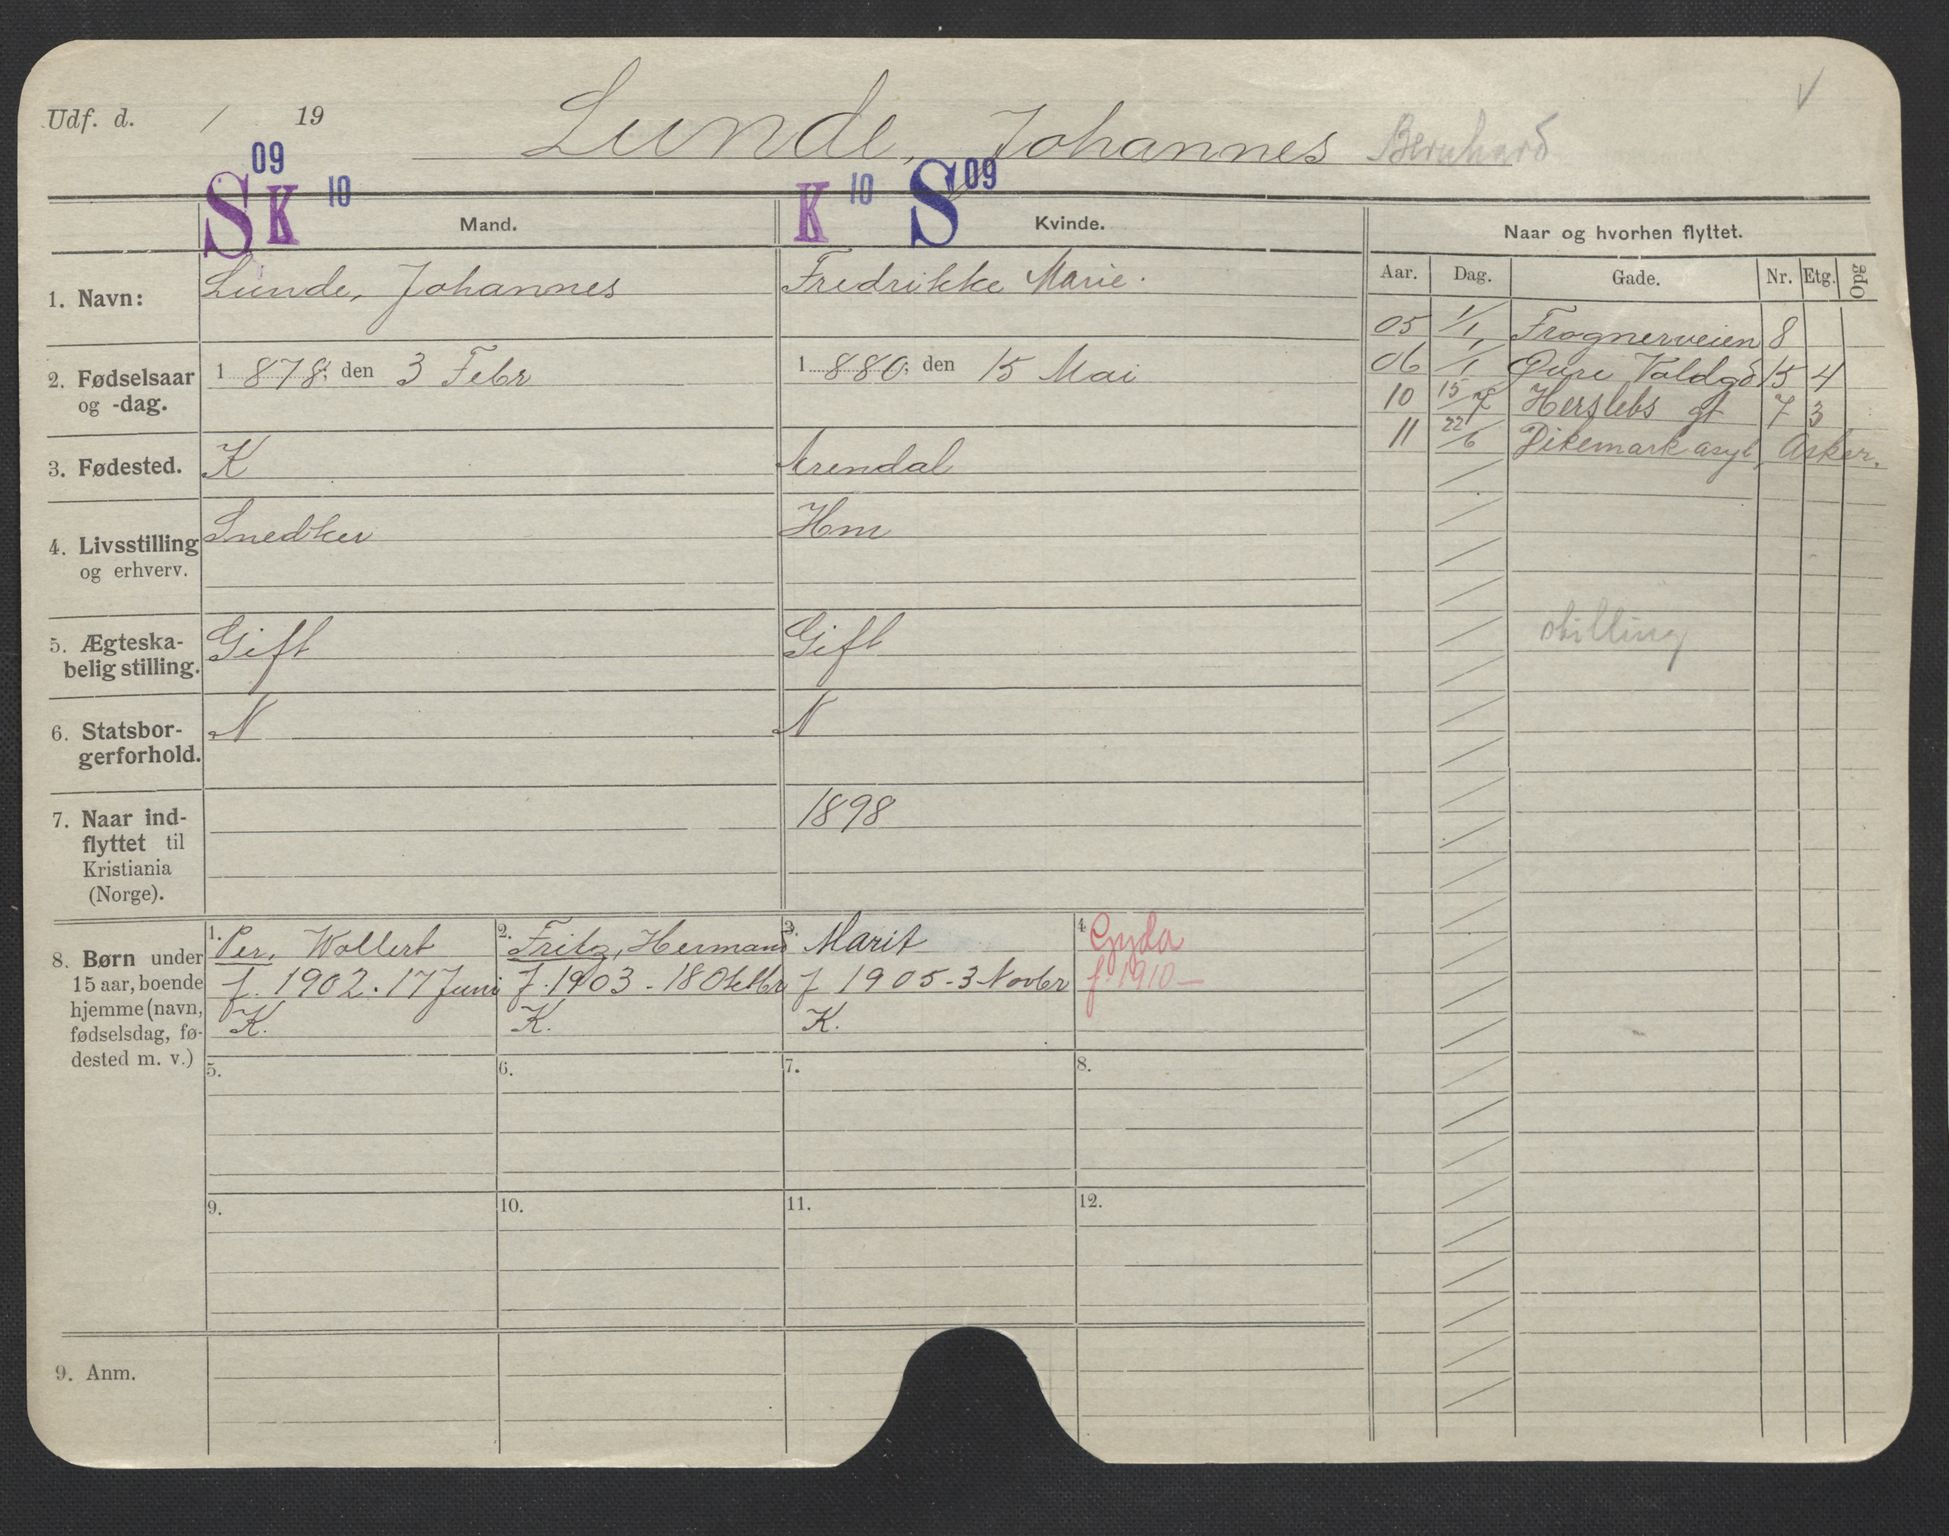 Udf. d. / 19
Lunde, Johannes Bernhard
S 09 K 10
K 10 S 09
Mand.
Kvinde.
Naar og hvorhen flyttet.
Aar. Dag. Gade. Nr. Etg. Opg
1. Navn:
Lunde, Johannes
Fredrikke Marie.
2. Fødselsaar
og -dag.
1 878; den 3 Febr
1 880; den 15 Mai
3. Fødested.
K
Arendal
4. Livsstilling
og erhverv.
Snedker
Hm
5. Ægteska-
belig stilling.
Gift
Gift
6. Statsbor-
gerforhold.
N
N
7. Naar ind-
flyttet til
Kristiania
(Norge).
1898
8. Børn under
15 aar, boende
hjemme (navn,
fødselsdag, fø-
dested m. v.)
1. Per, Wollert
f. 1902. 17 Juni
K.
2. Fritz, Hermann
f. 1903 - 18 Oktbr
K.
3. Marit
f 1905 - 3 Novbr
K.
4. Gyda
f. 1910 -
5.
6.
7.
8.
9.
10.
11.
12.
9. Anm.
05 1/1 Frognerveien 8
06 /1 Thv. 15 4
10 15/7 Herslebs gt 7 3
11 22/6 Dikemark asyl, Asker.
stilling